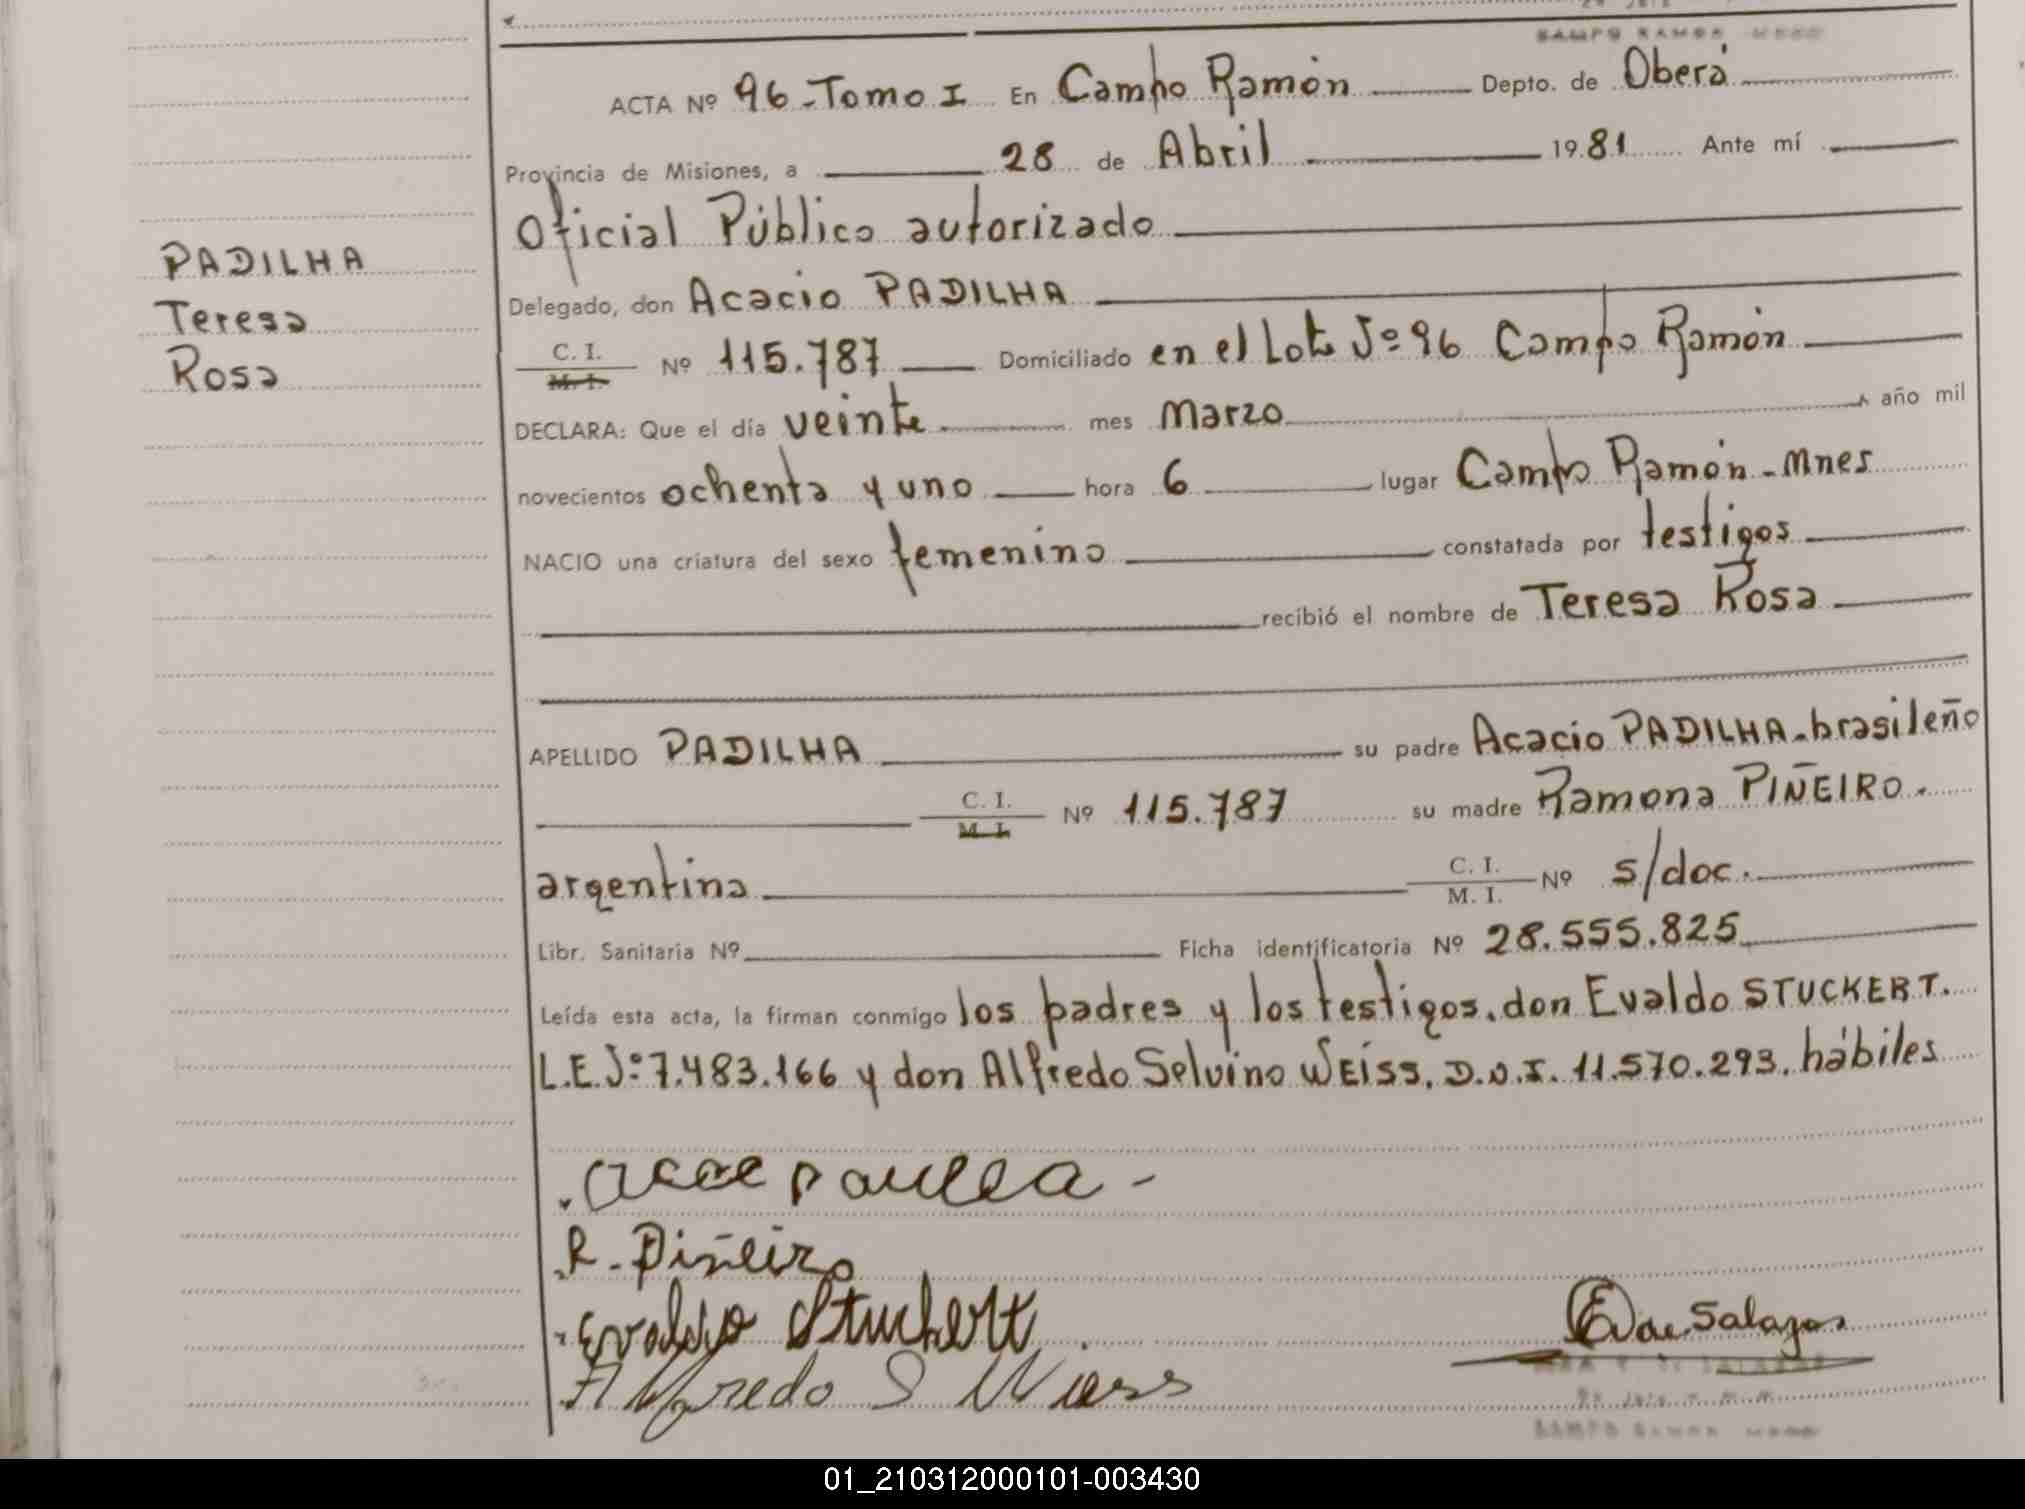 ACTA Nº 96-Tomo I En Campo Ramón Depto. de Oberá
Provincia de Misiones, a 28 de Abril 1981 Ante mí
Oficial Público autorizado
PADILHA
Teresa
Rosa
Delegado, don Acacio PADILHA
C. I. M. I. Nº 115.787 Domiciliado en el Lote Nº 96 Campo Ramón
DECLARA: Que el día veinte mes Marzo año mil
novecientos ochenta y uno hora 6 lugar Campo Ramón - Mnes
NACIO una criatura del sexo femenino constatada por testigos
recibió el nombre de Teresa Rosa
APELLIDO PADILHA su padre Acacio PADILHA - brasileño
C. I. M. I. Nº 115.787 su madre Ramona PIÑEIRO.
argentina C. I. M. I. Nº s/doc.
Libr. Sanitaria Nº Ficha identificatoria Nº 28.555.825
Leída esta acta, la firman conmigo los padres y los testigos, don Evaldo STUCKERT.
L.E.Nº: 7.483.166 y don Alfredo Selvino WEISS, D.N.I. 11.570.293, hábiles
R. Piñeiro
Evaldo Stuckert
Alfredo S Weiss
01_210312000101-003430